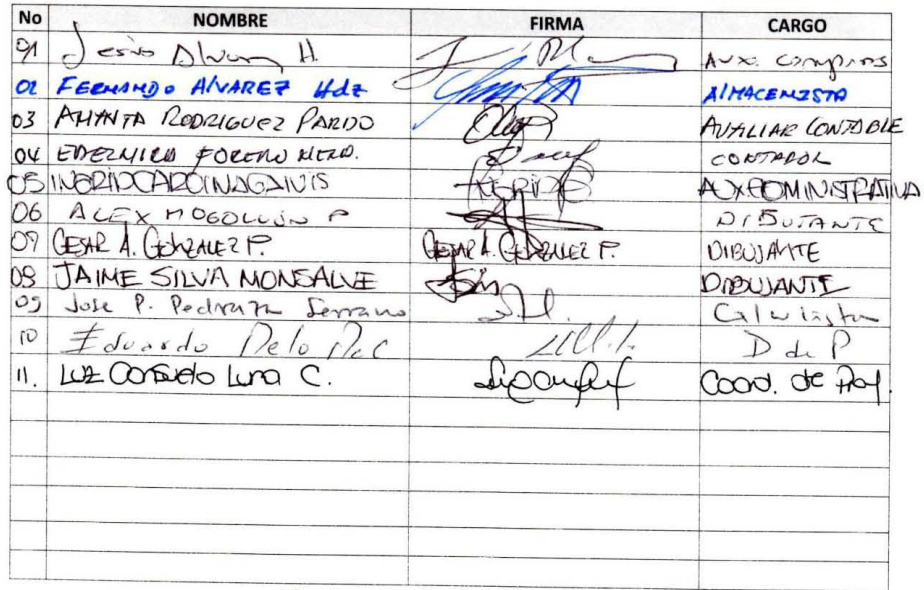 No NOMBRE FIRMA CARGO
01 Jesús Alvarez H. Aux. compras
02 FERNANDO AlVAREZ Hdz AlMACENISTA
03 AMINTA RODRIGUEZ PARDO AUXILIAR CONTABLE
04 FORERO CONTADOR
05 INGRID CAROLINA AUX ADMINISTRATIVA
06 ALEX MOGOLLON P DIBUJANTE
07 CESAR A. GONZALEZ P. CESAR A. GONZALEZ P. DIBUJANTE
08 JAIME SILVA MONSALVE DIBUJANTE
09 Jose P. Pedraza Serrano
10 Eduardo D de P
11. LUZ Consuelo Luna C. Coord. de